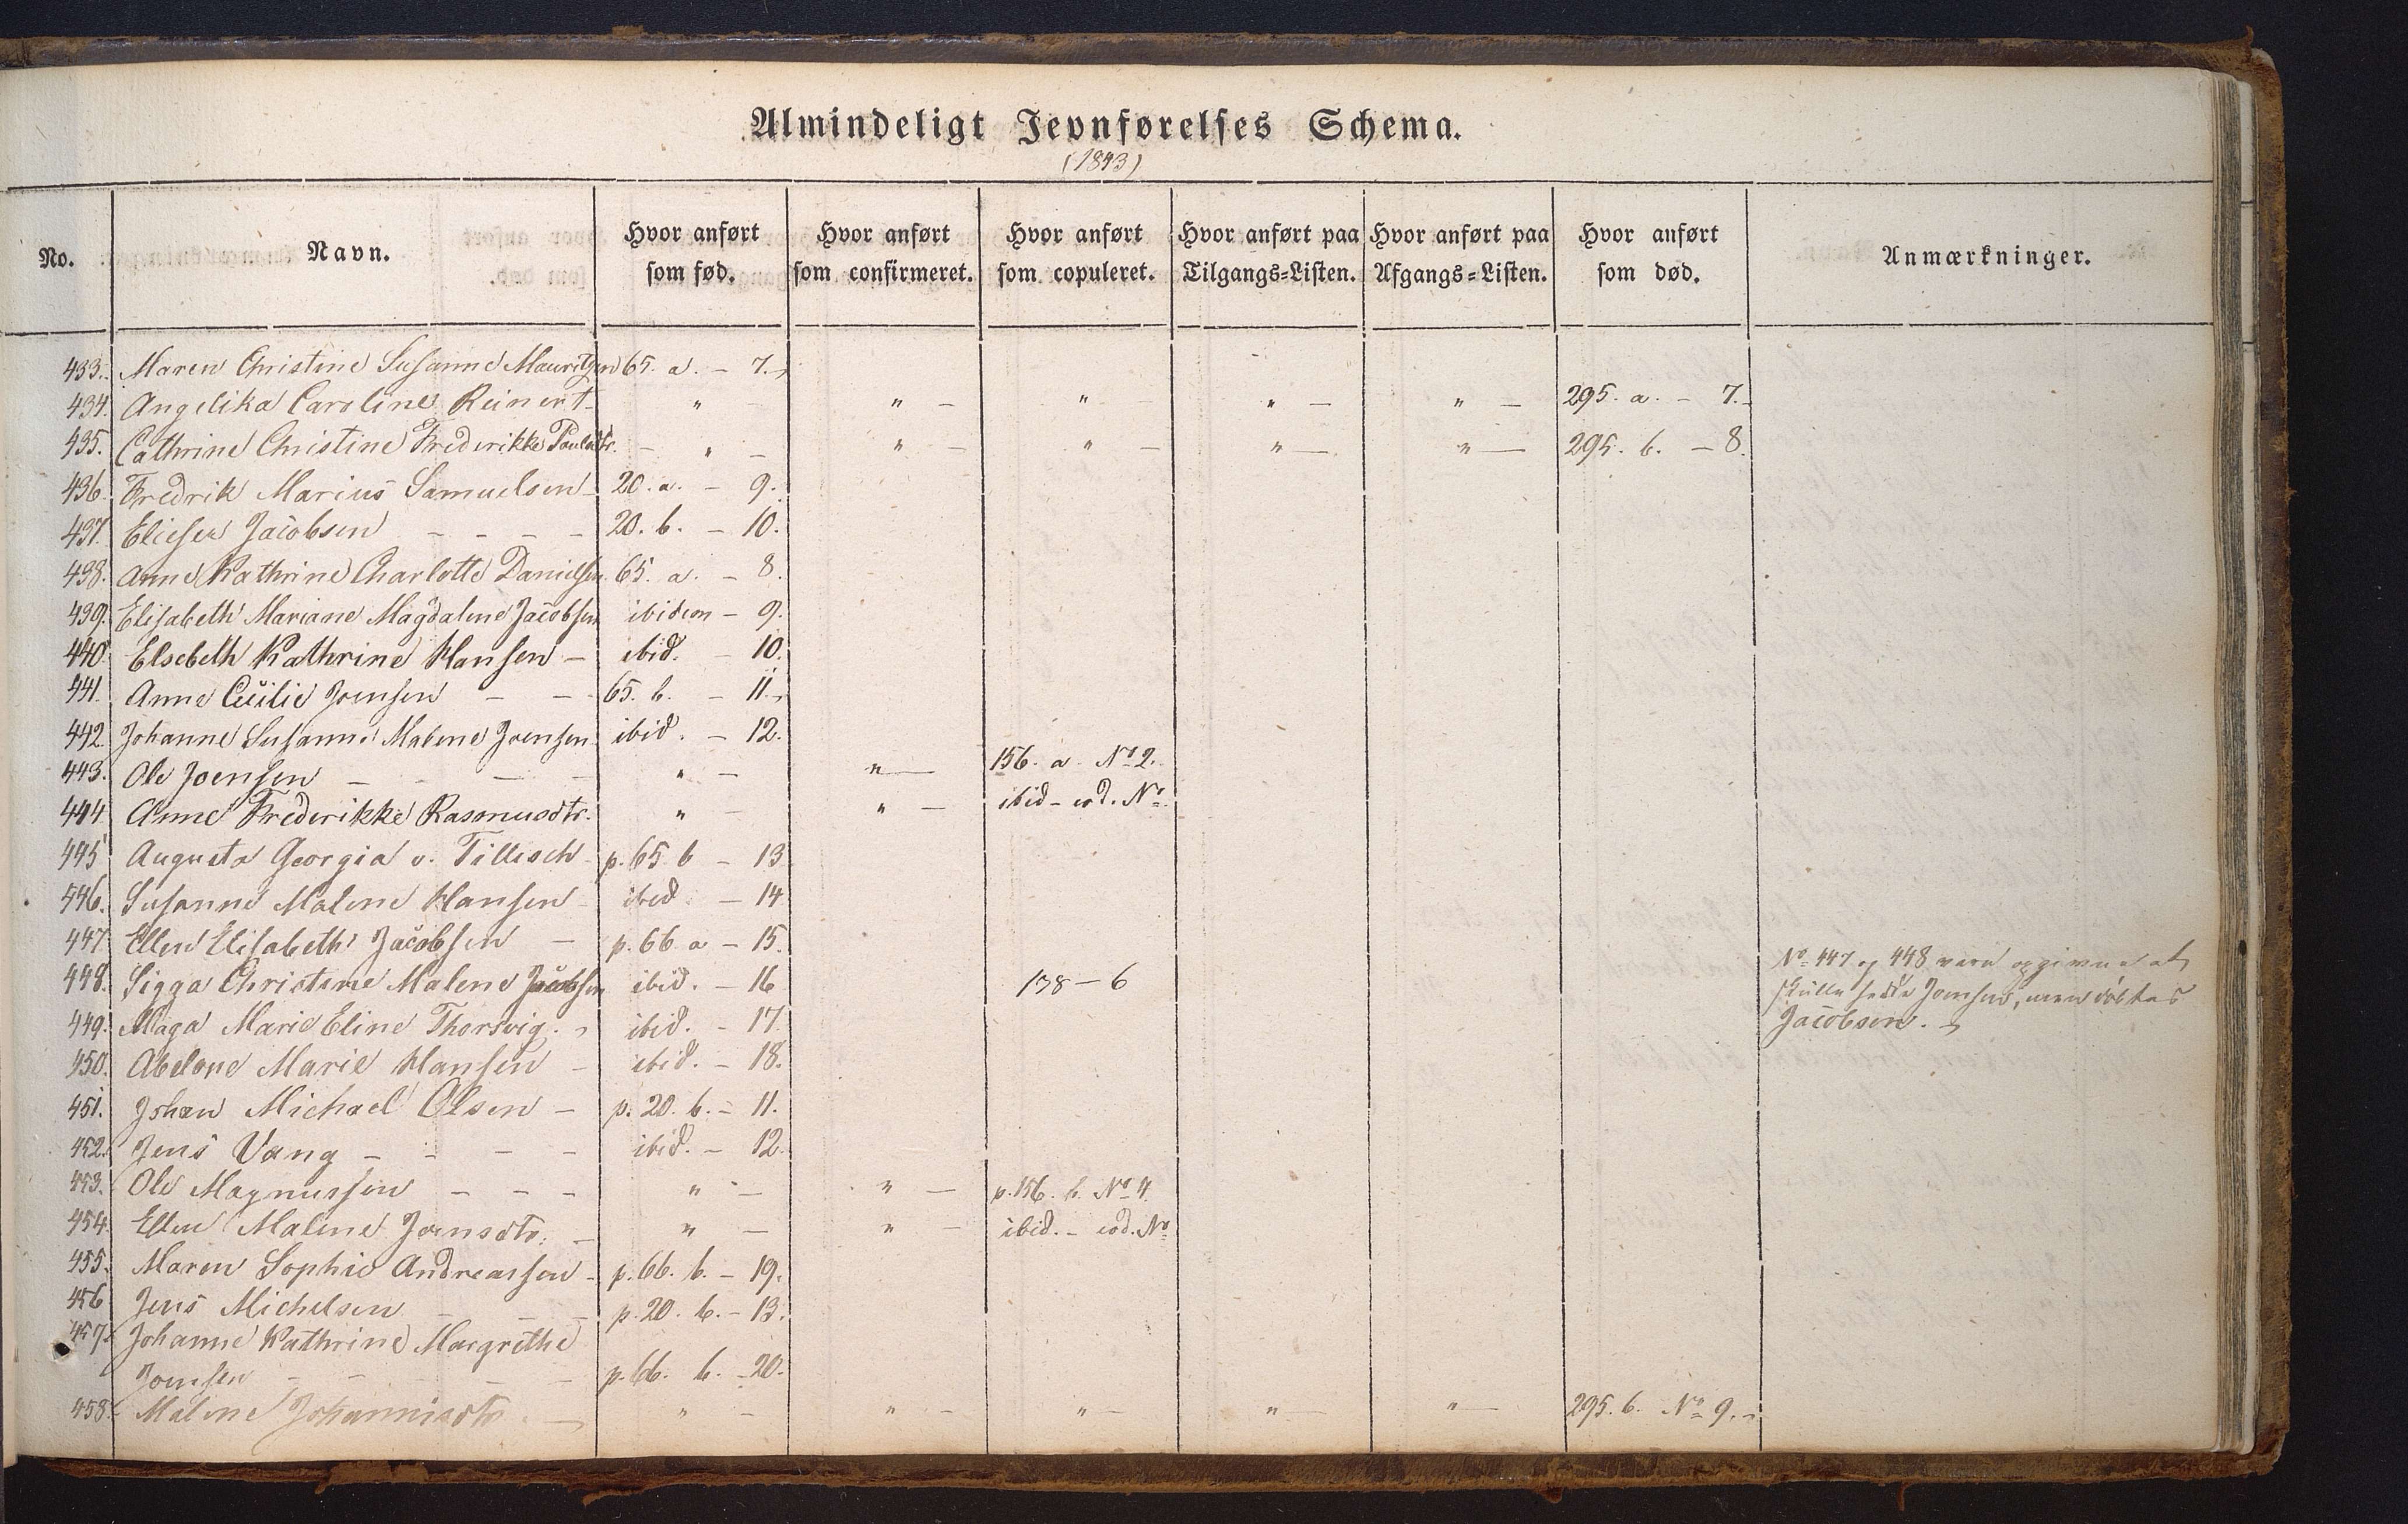 Almindeligt Jevnførelses Schema.
(1843)
No. Navn. Hvor anført som fød. Hvor anført som confirmeret. Hvor anført som copuleret. Hvor anført paa Tilgangs=Listen. Hvor anført paa Afgangs=Listen. Hvor anført som død. Anmærkninger.
433. Maren Christine Susanne Mauritzen 65. a. – 7.
434. Angelika Caroline Reinert – " – " – " – " – " – 295. a. – 7.
435. Cathrine Christine Frederikke Poulsdtr. – " – " – " – " – " – 295. b. – 8.
436. Fredrik Marius Samuelsen – 20. a. – 9.
437. Elieser Jacobsen – – – – 20. b. – 10.
438. Anne Kathrine Charlotte Danielsen 65. a. – 8.
439. Elisabeth Mariane Magdalene Jacobsen ibidem – 9.
440. Elsebeth Kathrine Hansen – ibid. – 10.
441. Anne Cecilie Joensen – – 65. b. – 11.
442. Johanne Susanne Malene Joensen ibid. – 12.
443. Ole Joensen – – – – " – " – 156. a. No 2.
444. Anne Frederikke Rasmusdtr. " – " – ibid – eod. No.
445 Augusta Georgia v. Tillisch p. 65 b – 13
446. Susanne Malene Hansen ibid – 14
447. Ellen Elisabeth Jacobsen – p. 66 a – 15.
448. Sigga Christine Malene Jacobsen ibid. – 16 138 – 6
No 447 og 448 vare opgivne at
skulle hedde Joensen, men døbtes
Jacobsen.
449. Maga Marie Eline Thorsvig. ibid. – 17.
450. Abelone Marie Hansen – ibid. – 18.
451. Johan Michael Olsen – p. 20. b. – 11.
452. Jens Vang – – – – ibid. – 12.
453. Ole Magnussen – – – " – " – p. 156. b. No 4.
454. Ellen Malene Joensdtr. – " – " – ibid. – eod. No
455. Maren Sophie Andreassen – p. 66. b. – 19.
456 Jens Michelsen – – – p. 20. b. – 13.
457. Johanne Kathrine Margrethe
Joensen – – – – p. 66. b. – 20.
458. Malene Johannisdtr. – " – " – " – " – " – 295. b. No 9.